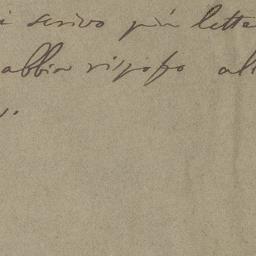 i scrivo più lette
abbia rispofo all